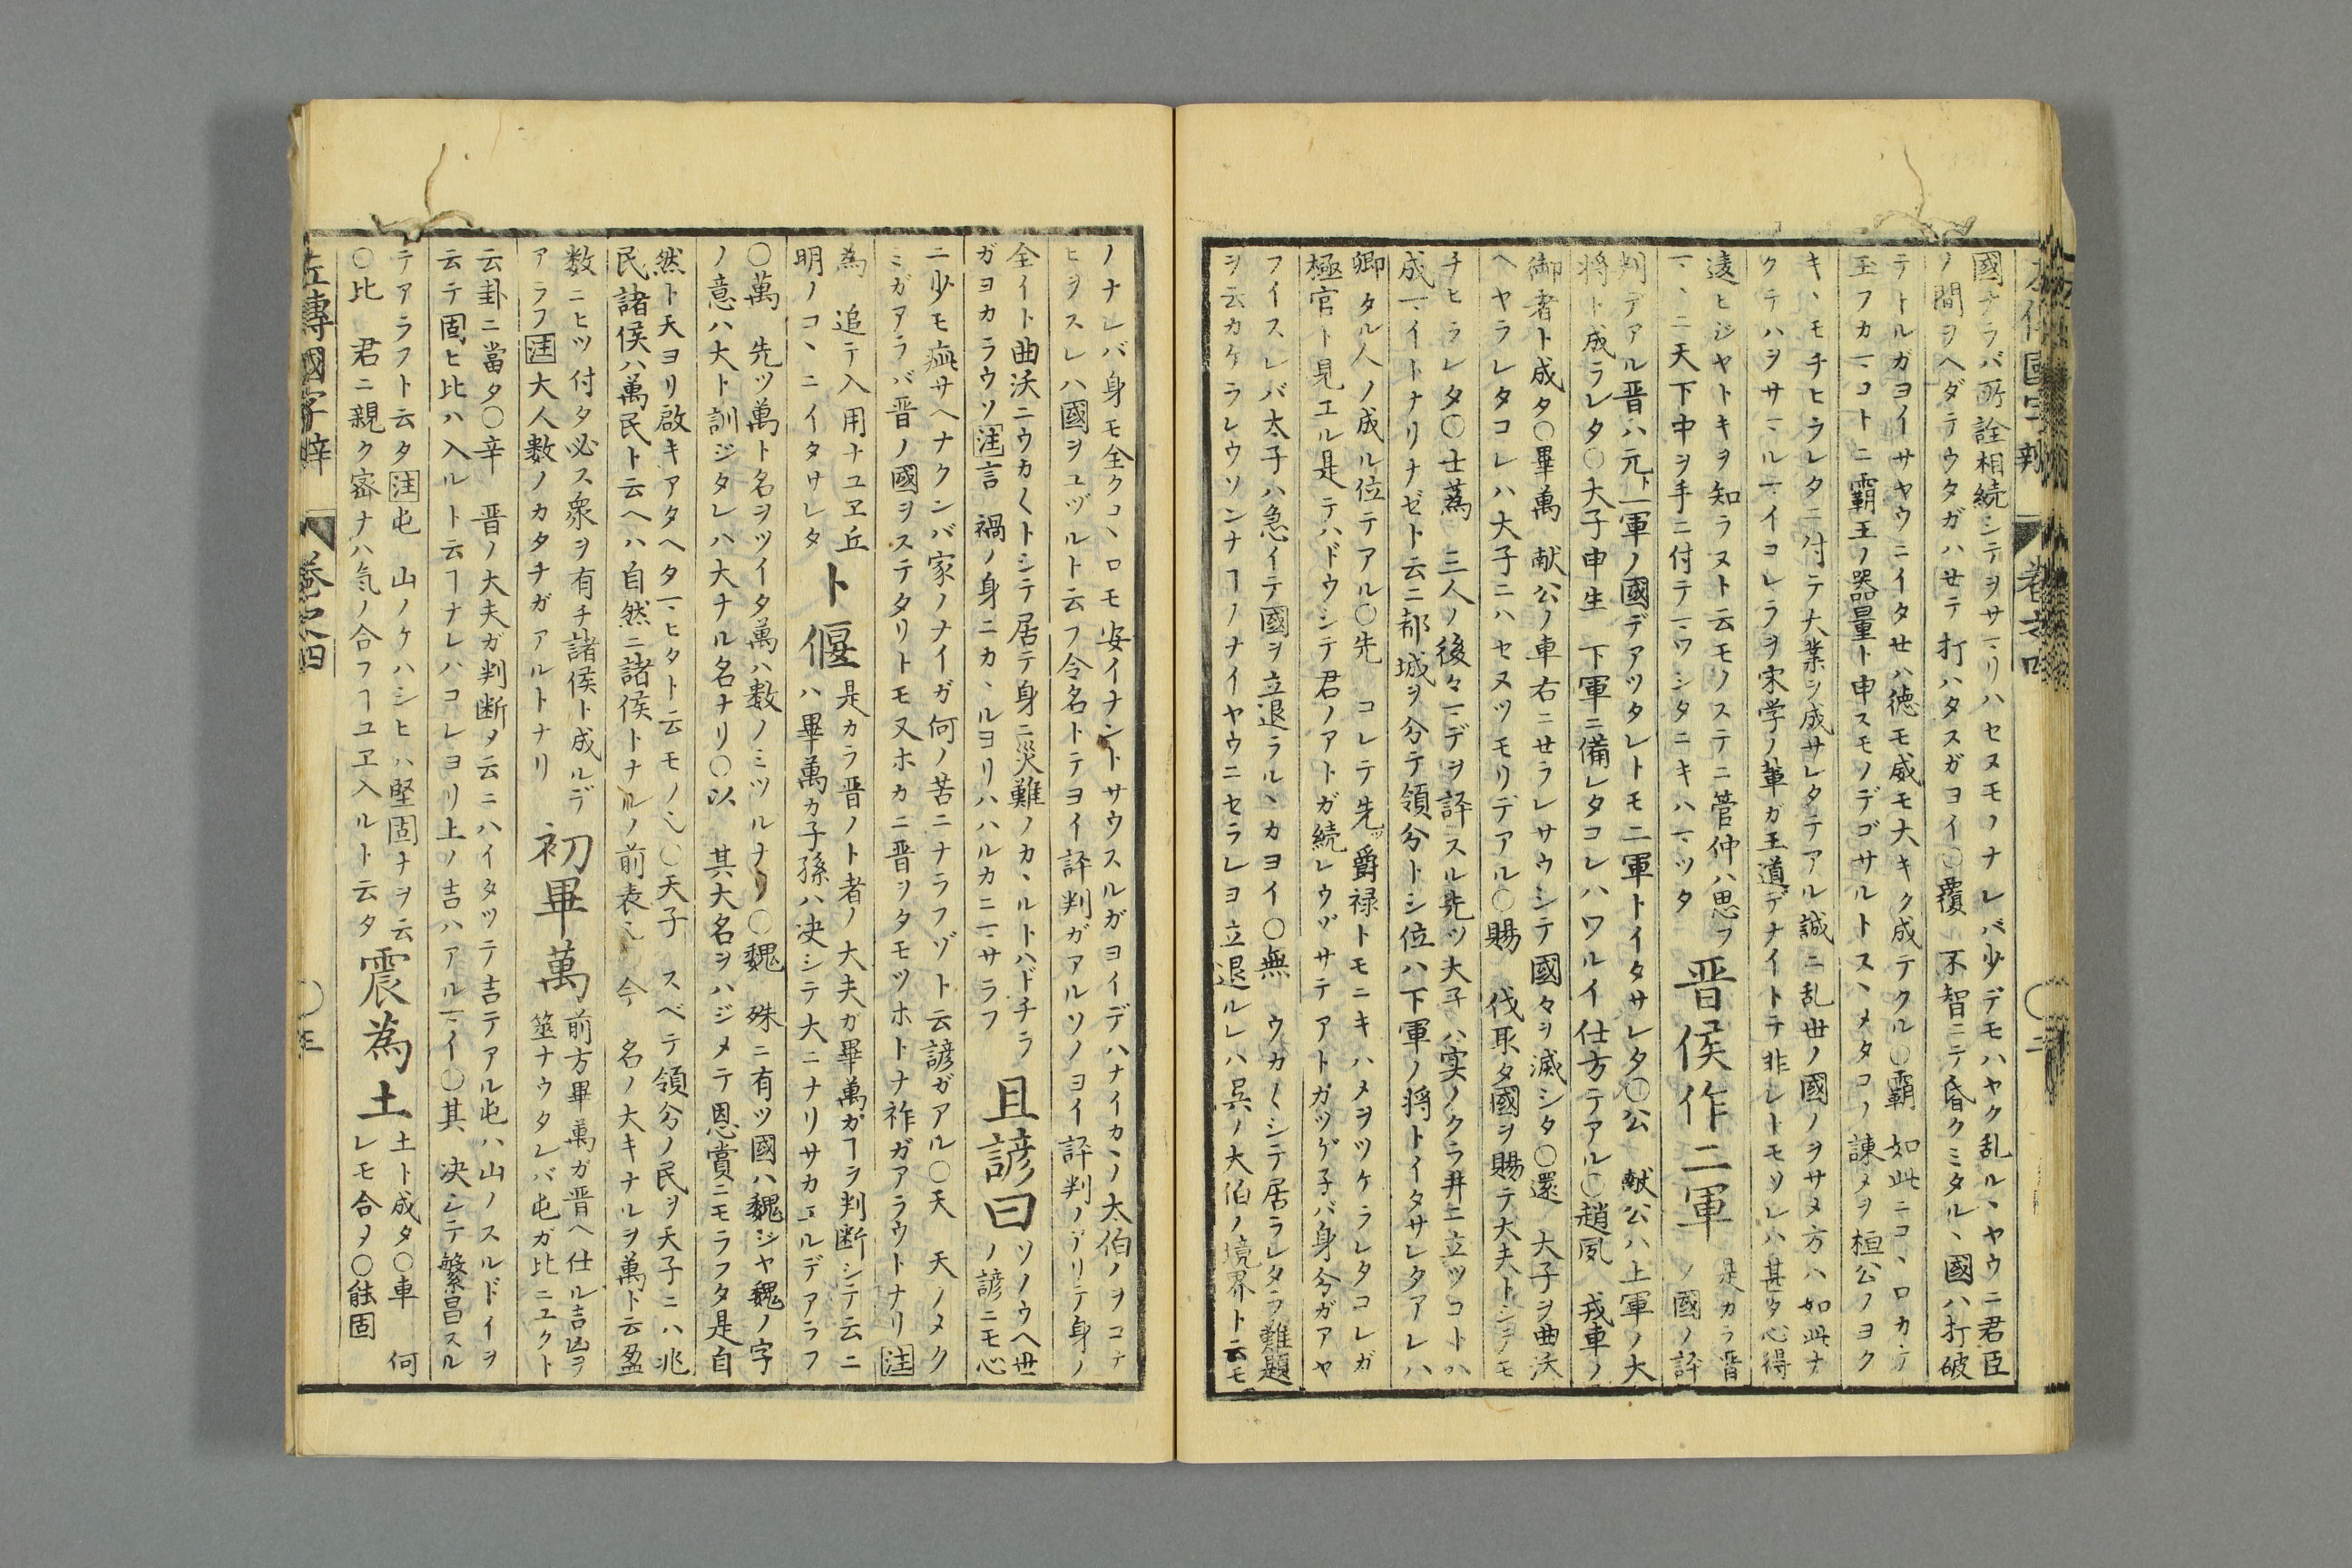 國ナラバ所詮相続シテヲサマリハセヌモノナレバ少デモハヤク乱ルヽヤウニ君臣
ノ間ヲヘダテウタガハセテ打ハタスガヨイ〇覆 不智ニテ昏クミタルヽ國ハ打破
テトルガヨイサヤウニイタセハ徳モ威モ大キク成テクル〇霸 如此ニコヽロカケ
玉フカマコトニ霸王ノ器量ト申スモノデゴサルトスヽメタコノ諌メヲ桓公ノヨク
キヽモチヒラレタニ付テ大業ヲ成サレタテアル誠ニ乱世ノ國ノヲサメ方ハ如此ナ
クテハヲサマルマイコレラヲ宋学ノ輩ガ王道デナイトテ非シトモソレハ甚タ心得
遠ヒジヤトキヲ知ラヌト云モノステニ管仲ハ思フ
マヽニ天下中ヲ手ニ付テマワシタニキハマツタ
晋侯作二軍
是カラ晋
ノ國ノ評
判デアル晋ハ元ト一軍ノ國デアツタレトモ二軍トイタサレタ〇公 献公ハ上軍ノ大
将ト成ラレタ〇大子申生 下軍ニ備レタコレハワルイ仕方テアル〇趙夙 戎車ノ
御者ト成タ〇畢萬 献公ノ車右ニセラレサウシテ國々ヲ滅シタ〇還 大子ヲ曲沃
ヘヤラレタコレハ大子ニハセヌツモリデアル〇賜 伐取タ國ヲ賜テ大夫トシヲモ
チヒラレタ〇士蔿 三人ノ後々マデヲ評スル先ツ大子ハ実ノクラ井ニ立ツコトハ
成マイトナリナゼト云ニ都城ヲ分テ領分トシ位ハ下軍ノ将トイタサレタアレハ
卿タル人ノ成ル位テアル〇先 コレテ先ツ爵禄トモニキハメヲツケラレタコレガ
極官ト見エル是テハドウシテ君ノアトガ続レウヅサテアトガツゲ子バ身分ガアヤ
フイスレバ太子ハ急イテ國ヲ立退ラルヽカヨイ〇無 ウカ〱シテ居ラレタラ難題
ヲ云カケラレウソンナコトノナイヤウニセラレヨ立退ルレハ呉ノ大伯ノ境界ト云モ
ノナレバ身モ全クコヽロモ安イナントサウスルガヨイデハナイカノ太伯ノヲコナ
ヒヲスレハ國ヲユヅルト云フ令名トテヨイ評判ガアルソノヨイ評判ノアリテ身ノ
全イト曲沃ニウカ〱トシテ居テ身ニ災難ノカヽルトハドチラ
ガヨカラウソ注言 禍ノ身ニカヽルヨリハハルカニマサラフ
且諺曰
ソノウヘ世
ノ諺ニモ心
ニ少モ疵サヘナクンバ家ノナイガ何ノ苦ニナラフゾト云諺ガアル〇天 天ノメク
ミガアラバ晋ノ國ヲステタリトモ又ホカニ晋ヲタモツホトナ祚ガアラウトナリ注
為 追テ入用ナユヱ丘
明ノコヽニイタサレタ
卜偃
是カラ晋ノト者ノ大夫ガ畢萬ガコトヲ判断シテ云ニ
ハ畢萬カ子孫ハ决シテ大ニナリサカエルデアラフ
〇萬 先ツ萬ト名ヲツイタ萬ハ数ノミツルナリ〇魏 殊ニ有ツ國ハ魏ジヤ魏ノ字
ノ意ハ大ト訓ジタレハ大ナル名ナリ〇以 其大名ヲハジメテ恩賞ニモラフタ是自
然ト天ヨリ啟キアタヘタマヒタト云モノ也〇天子 スベテ領分ノ民ヲ天子ニハ兆
民諸侯ハ萬民ト云ヘハ自然ニ諸侯トナルノ前表也〇今 名ノ大キナルヲ萬ト云盈
数ニヒツ付タ必ス衆ヲ有チ諸侯ト成ルデ
アラフ注大人数ノカタチガアルトナリ
初畢萬
前方畢萬ガ晋ヘ仕ル吉凶ヲ
筮ナウタレバ屯ガ比ニユクト
云卦ニ當タ〇辛 晋ノ大夫ガ判断メ云ニハイタツテ吉テアル屯ハ山ノスルドイヲ
云テ固ヒ比ハ入ルト云コトナレハコレヨリ上ノ吉ハアルマイ〇其 决シテ繁昌スル
テアラフト云タ注屯 山ノケハシヒハ堅固ナヲ云
〇比 君ニ親ク密ナハ気ノ合フコトユヱ入ルト云タ
震為土
土ト成タ〇車 何
レモ合メ〇能固
左傳國字辨 巻之四 〇三